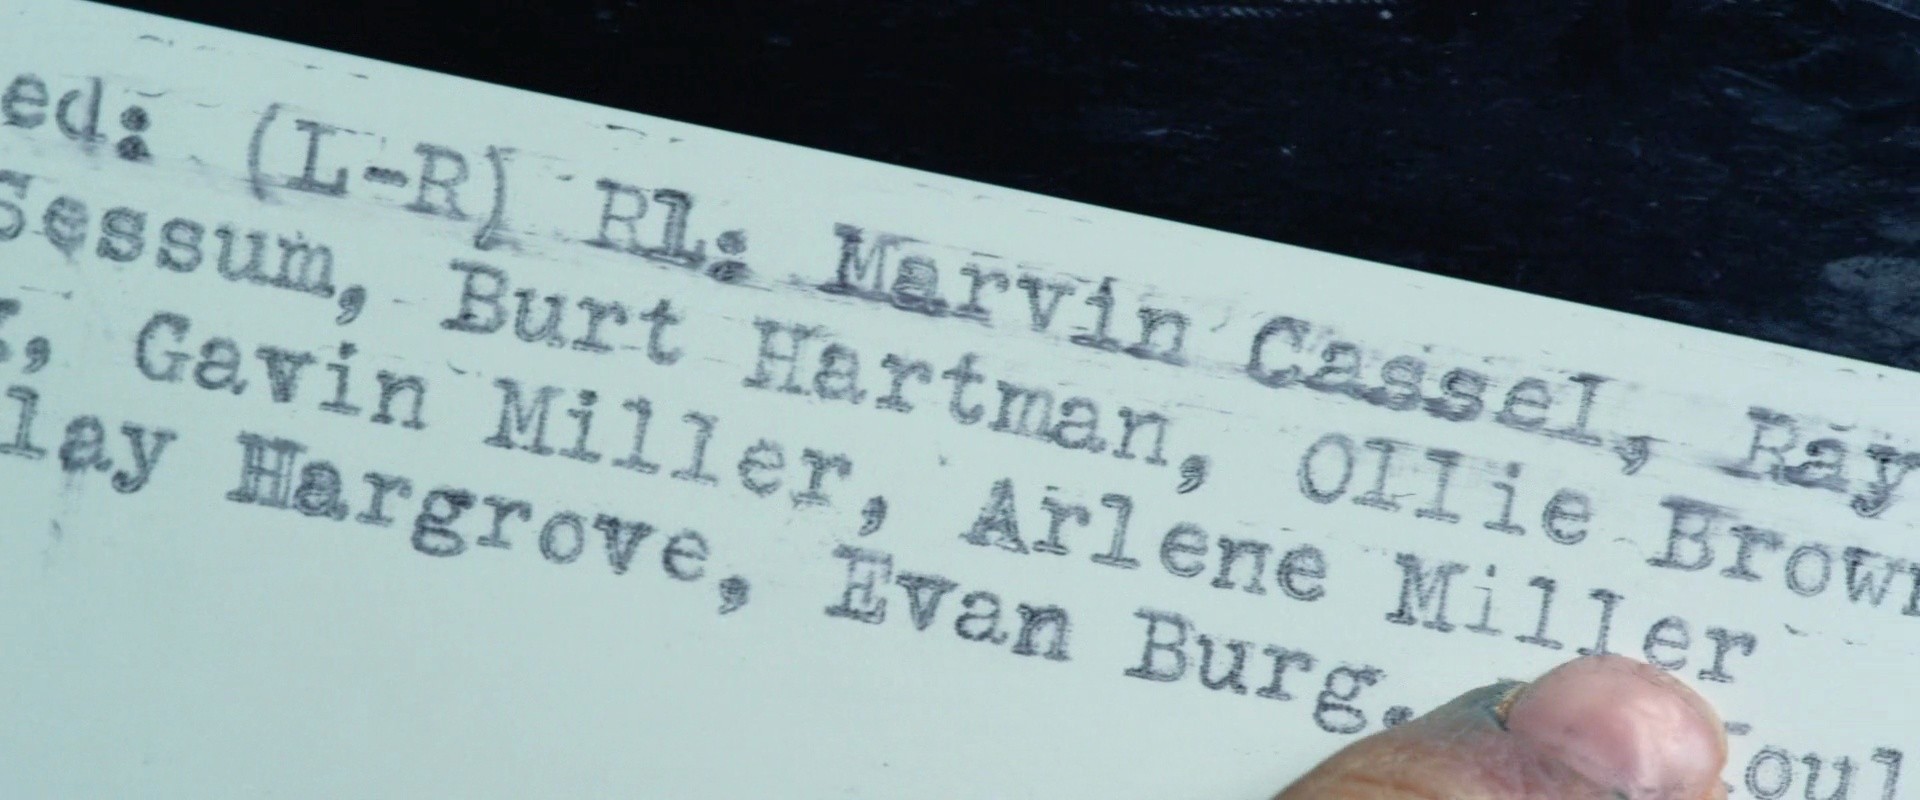 ed: (L-R) R1: Marvin Cassel, Ray
Sessum, Burt Hartman, Ollie Brown
Gavin Miller, Arlene Miller
lay Hargrove, Evan Burg.
oul